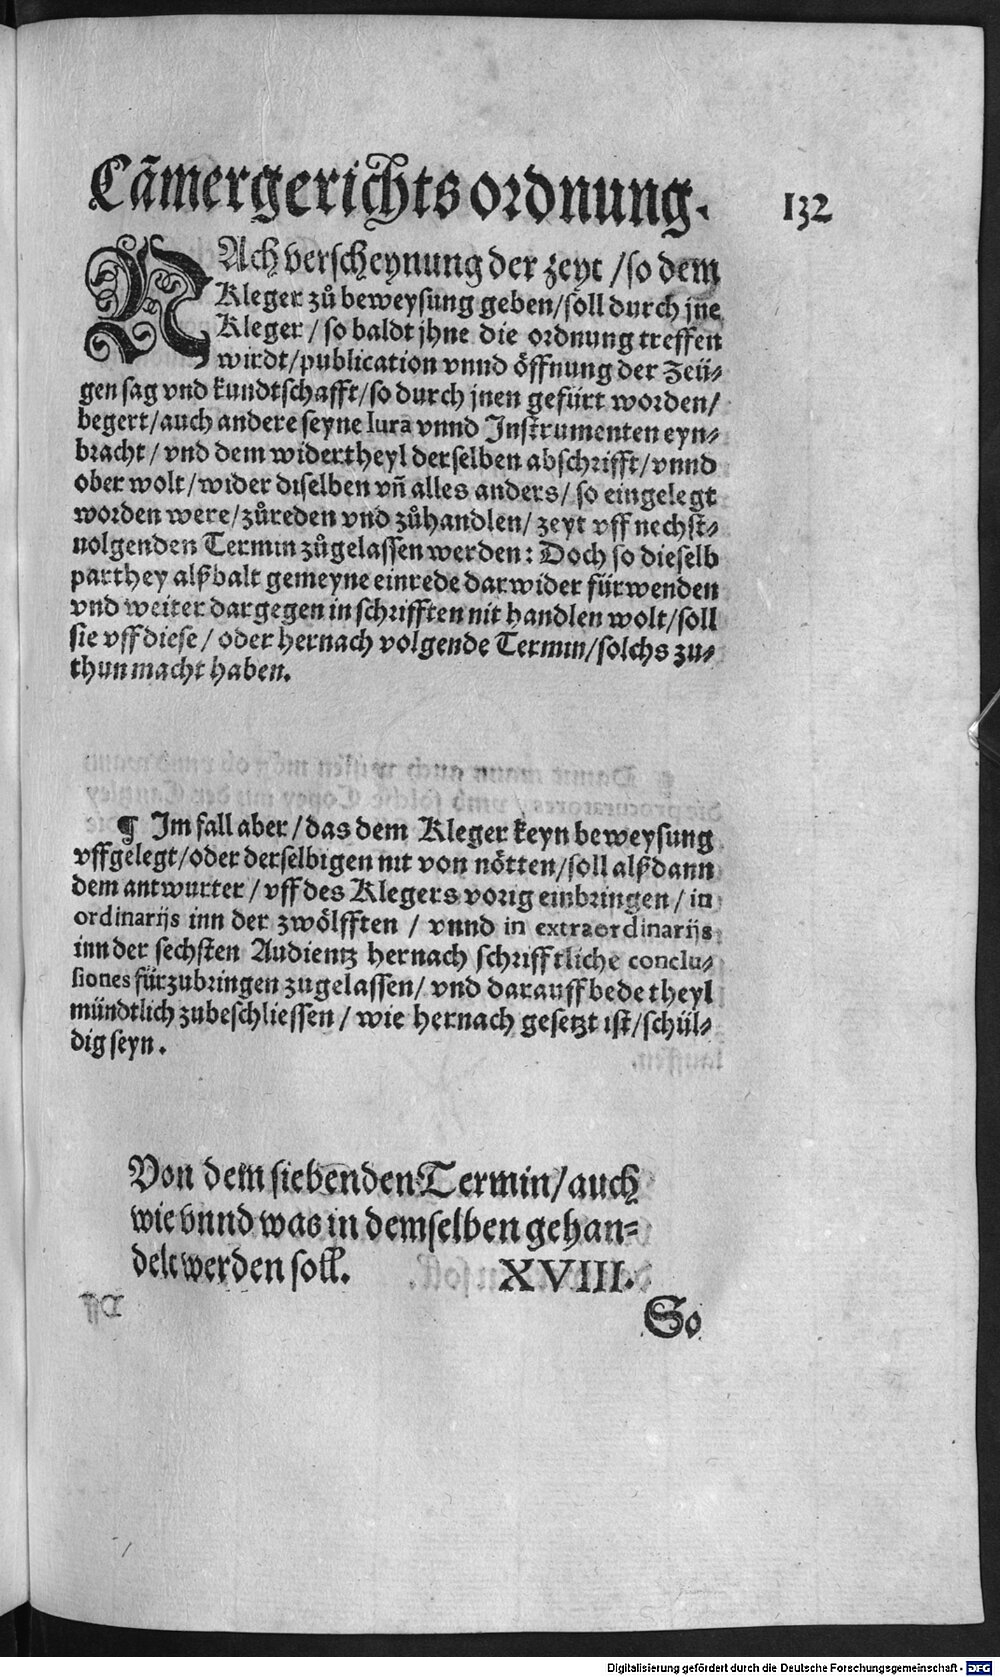 Cãmergerichts ordnung. 132
NAch verscheynung der zeyt / so dem
Kleger zů beweysung geben / soll durch jne
Kleger / so baldt jhne die ordnung treffen
wirdt / publication vnnd öffnung der Zeü⸗
gen sag vnd kundtschafft / so durch jnen gefürt worden /
begert / auch andere seyne Iura vnnd Instrumenten eyn⸗
bracht / vnd dem widertheyl derselben abschrifft / vnnd
ober wolt / wider diselben vñ alles anders / so eingelegt
worden were / zůreden vnd zůhandlen / zeyt vff nechst⸗
uolgenden Termin zůgelassen werden: Doch so dieselb
parthey alßbalt gemeyne einrede darwider fürwenden
vnd weiter dargegen in schrifften nit handlen wolt / soll
sie vff diese / oder hernach volgende Termin / solchs zu⸗
thun macht haben.
¶ Im fall aber / das dem Kleger keyn beweysung
vffgelegt / oder derselbigen nit von nötten / soll alßdann
dem antwurter / vff des Klegers vorig einbringen / in
ordinarijs inn der zwölfften / vnnd in extraordinarijs
inn der sechsten Audientz hernach schrifftliche conclu⸗
siones fürzubringen zugelassen / vnd darauff bede theyl
mündtlich zubeschliessen / wie hernach gesetzt ist / schül⸗
dig seyn.
Von dem siebenden Termin / auch
wie vnnd was in demselben gehan⸗
delt werden soll. XVIII.
So
Digitalisierung gefördert durch die Deutsche Forschungsgemeinschaft - DFG